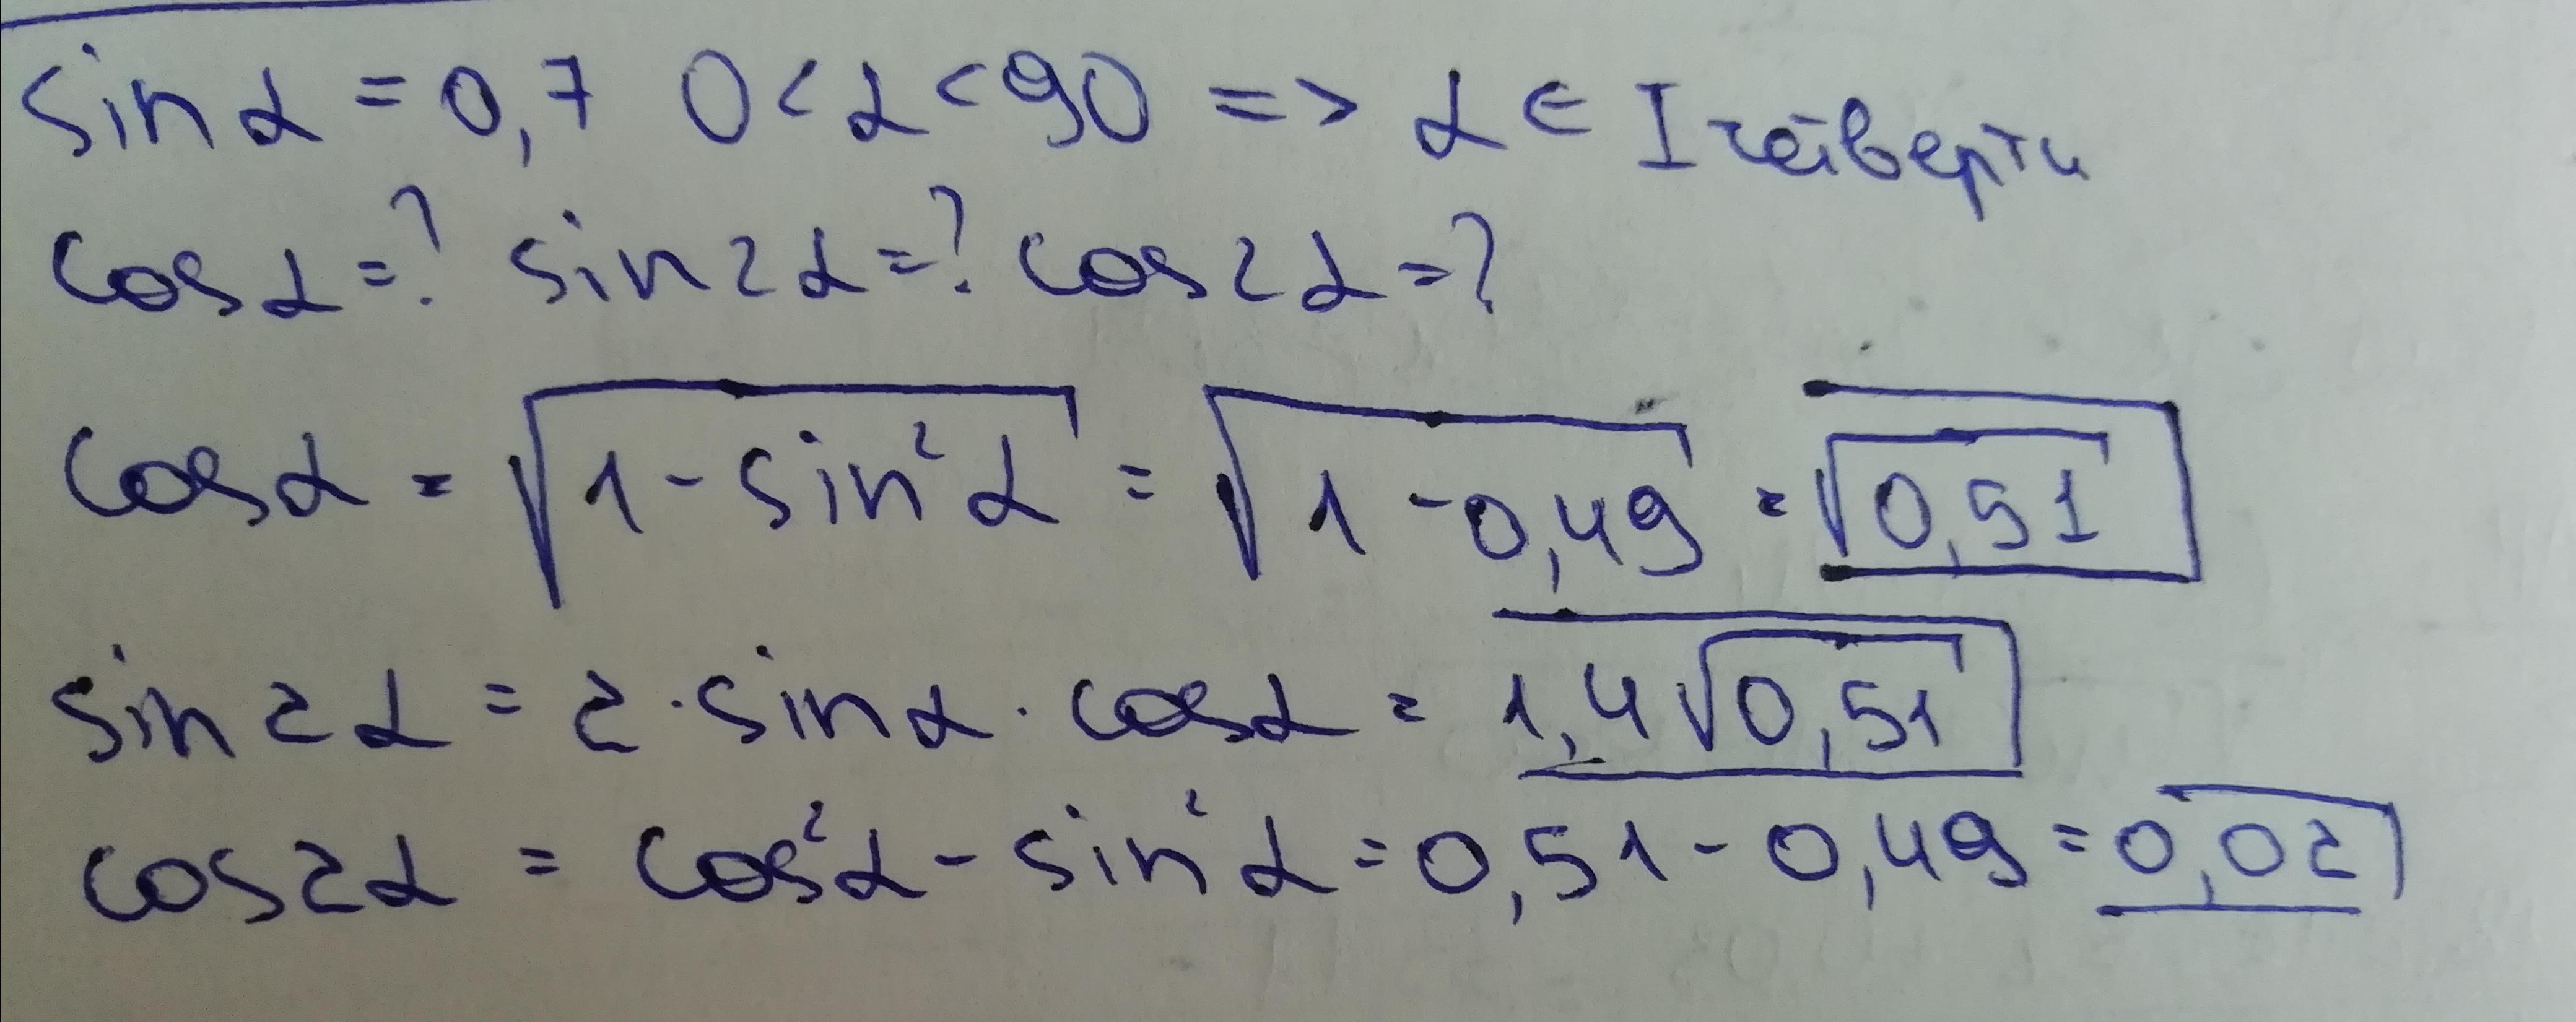 sin α = 0,7 0 < α < 90 => α ∈ I четверти
cos α = ? sin 2α = ? cos 2α = ?
cos α = √(1 - sin² α) = √(1 - 0,49) = √0,51
sin 2α = 2 · sin α · cos α = 1,4√0,51
cos 2α = cos² α - sin² α = 0,51 - 0,49 = 0,02